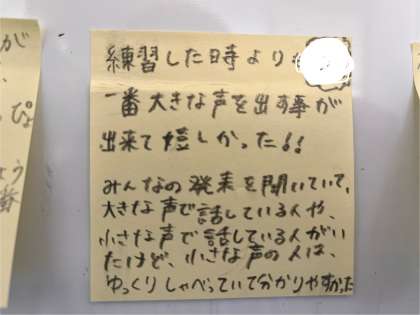 練習した時よりも
一番大きな声を出す事が
出来て嬉しかった!!
みんなの発表を聞いていて、
大きな声で話している人や、
小さな声で話している人がい
たけど、小さな声の人は、
ゆっくりしゃべっていて分かりやすかった
が
ぴょ
う
番